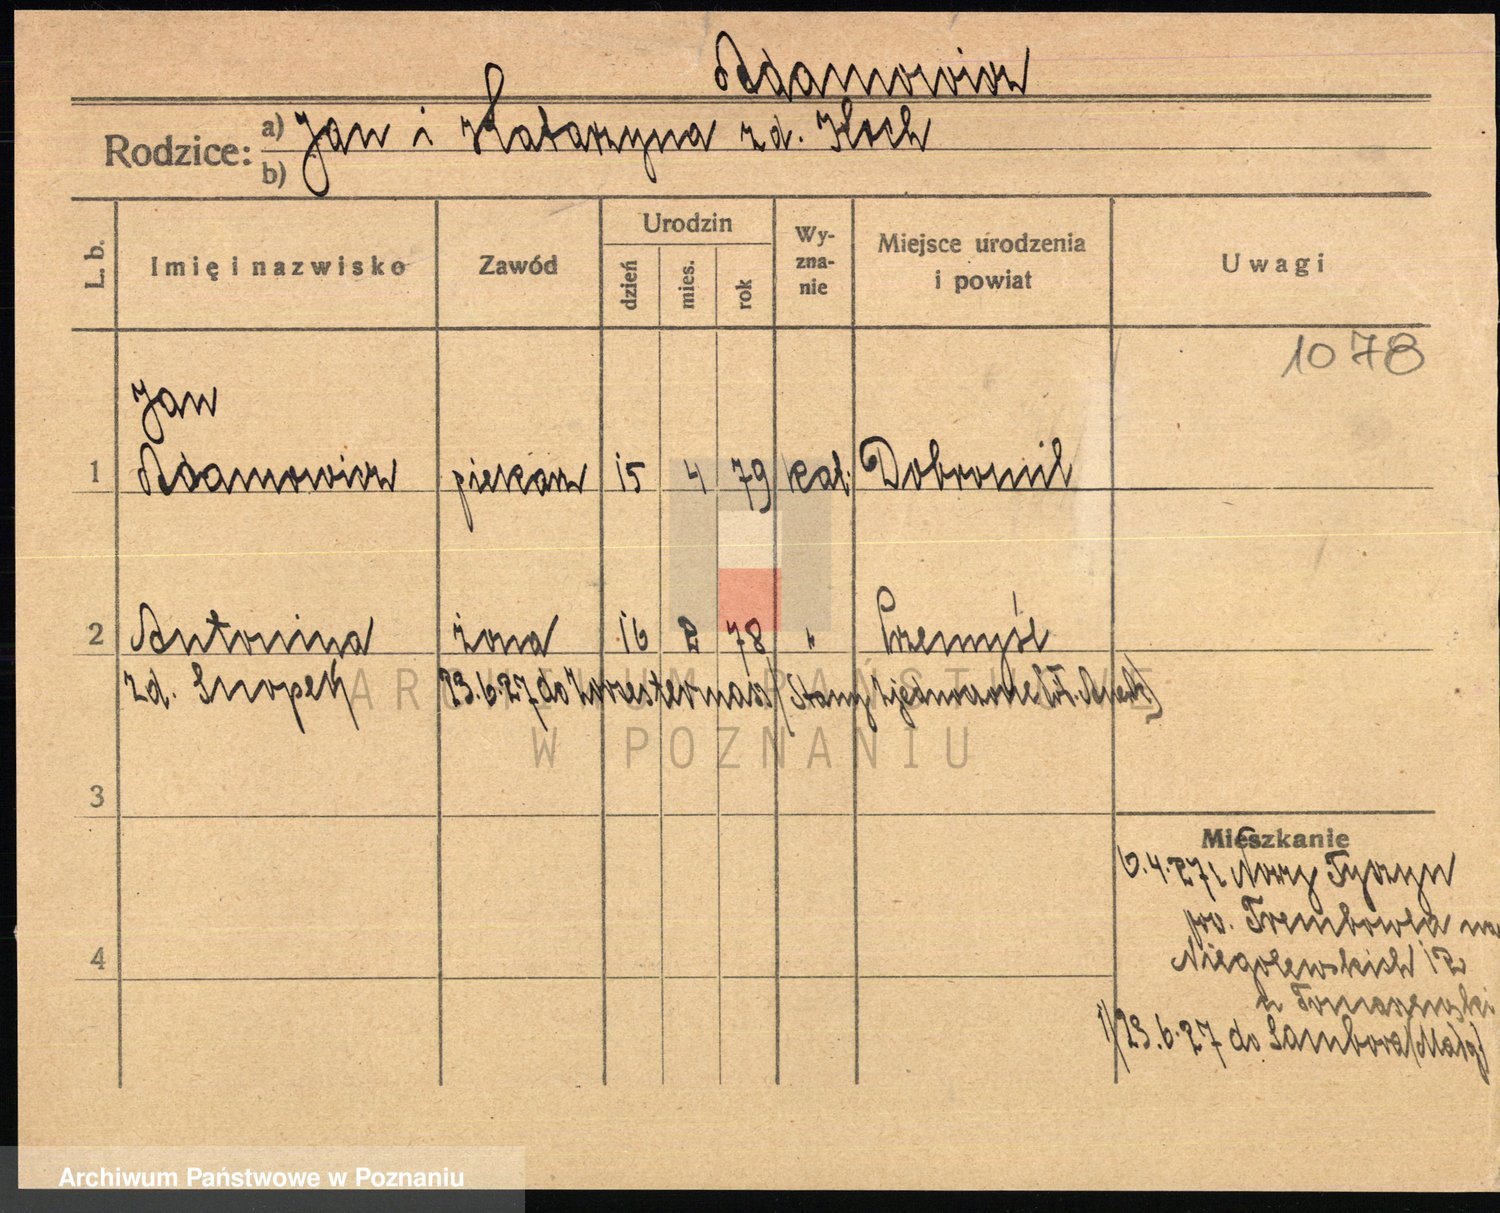 Adamowicz
Rodzice: a) Jan i Katarzyna zd. Kloch
b)
L. b. Imię i nazwisko Zawód Urodzin dzień mies. rok Wy-zna-nie Miejsce urodzenia i powiat Uwagi
1078
Jan
1 Adamowicz piekarz 15 4 79 kat. Dobromil
2 Antonina żona 16 2 78 " Przemyśl
zd. Snopek 23.6.27 do (Stany Zjednoczone
ARCHIWUM PAŃSTWOWE
W POZNANIU
3
Mieszkanie
6.4.27 z Nowy Tyczyn
pow. Trembowla na
4 Niegolewskich 12
u Tomaszewski
1) 23.6.27 do Sambora (Małp)
Archiwum Państwowe w Poznaniu